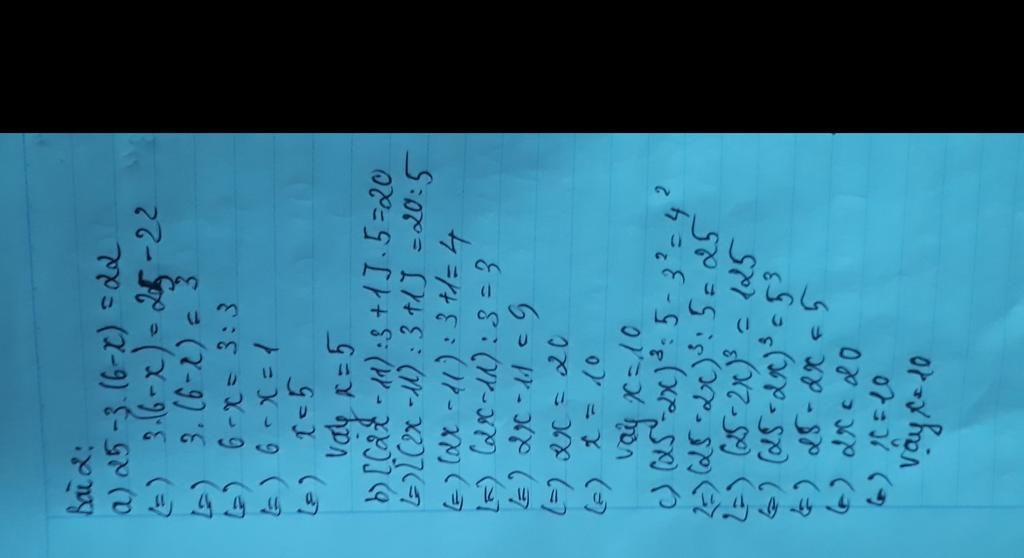 Bài 2:
a) 25 - 3.(6-x) = 22
(=) 3.(6-x) = 25 - 22
(=) 3.(6-x) = 3
(=) 6-x = 3:3
(=) 6-x = 1
(=) x = 5
vậy x = 5
b) [(2x - 11):3+1].5=20
(=) [(2x -11):3+1] = 20:5
(=) (2x - 11):3+1=4
(=) (2x-11):3 = 3
(=) 2x - 11 = 9
(=) 2x = 20
(=) x = 10
vậy x = 10
c) (25 - 2x)³:5 - 3² = 4²
(=) (25 - 2x)³:5 = 25
(=) (25 - 2x)³ = 125
(=) (25 - 2x)³ = 5³
(=) 25 - 2x = 5
(=) 2x = 20
(=) x = 10
vậy x = 10